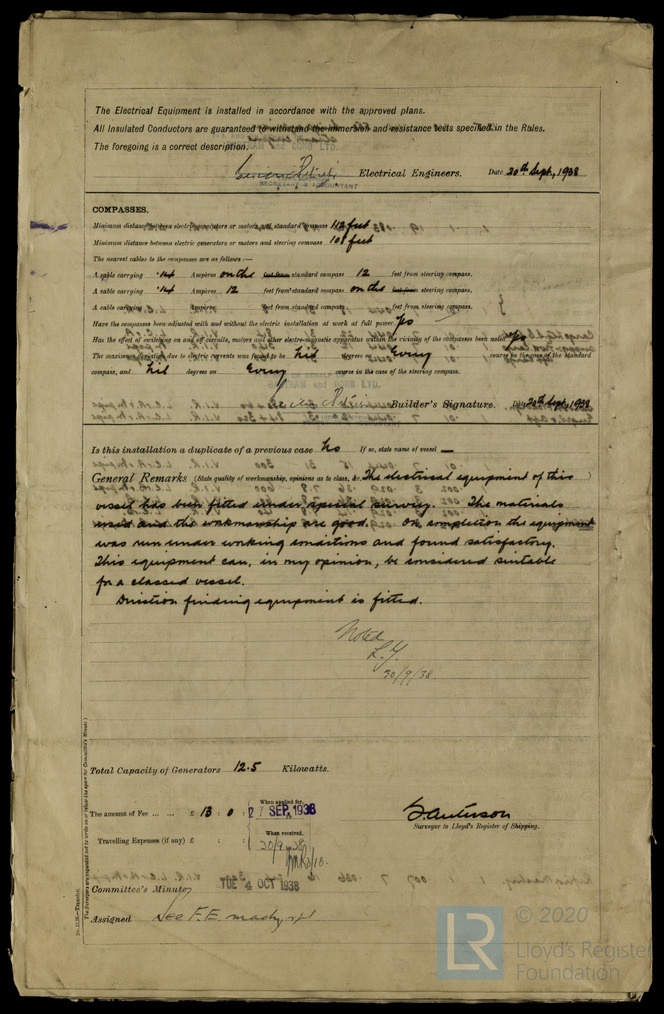 The Electrical Equipment is installed in accordance with the approved plans.
All Insulated Conductors are guaranteed to withstand the immersion and resistance tests specified in the Rules.
The foregoing is a correct description.
Electrical Engineers. Date 20th Sept, 1938
SECRETARY & ACCOUNTANT
COMPASSES.
Minimum distance between electric generators or motors and standard compass 112 feet
Minimum distance between electric generators or motors and steering compass 108 feet
The nearest cables to the compasses are as follows:—
A cable carrying .14 Ampères on the feet from standard compass 12 feet from steering compass.
A cable carrying .14 Ampères 12 feet from standard compass on the feet from steering compass.
A cable carrying Ampères feet from standard compass feet from steering compass.
Have the compasses been adjusted with and without the electric installation at work at full power Yes
Has the effect of switching on and off circuits, motors and other electro-magnetic apparatus within the vicinity of the compasses been noted Yes
The maximum deviation due to electric currents was found to be Nil degrees on Every course in the case of the standard
compass, and Nil degrees on Every course in the case of the steering compass.
Builder's Signature. Date 20th Sept, 1938
Is this installation a duplicate of a previous case No If so, state name of vessel —
General Remarks (State quality of workmanship, opinions as to class, &c. The electrical equipment of this )
vessel has been fitted under special survey. The materials
used and the workmanship are good. On completion the equipment
was run under working conditions and found satisfactory.
This equipment can, in my opinion, be considered suitable
for a classed vessel.
Direction finding equipment is fitted.
Noted
L.Y.
30/9/38.
Total Capacity of Generators 12.5 Kilowatts.
The amount of Fee ... ... £ 13 : 0 : When applied for, 27 SEP 1938
Travelling Expenses (if any) £ : : When received, 30/9 1938
Surveyor to Lloyd's Register of Shipping.
Committee's Minute TUE 4 OCT 1938
Assigned See F.E. machy rpt
(The Surveyors are requested not to write on or below the space for Committee's Minute.)
© 2020
LR
Lloyd's Register
Foundation